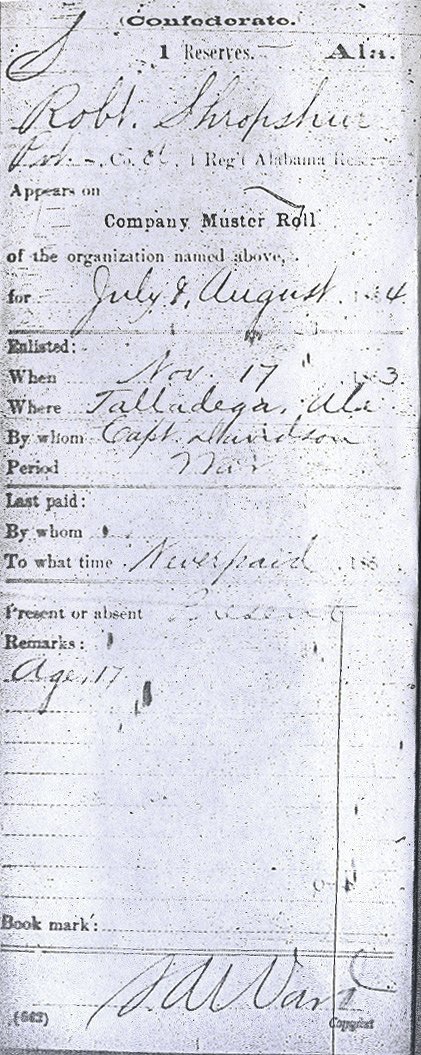 (Confederate.
S 1 Reserves. Ala.
Robt. Shropshur
Pvt. , Co. , 1 Reg't Alabama Reserves
Appears on
Company Muster Roll
of the organization named above,
for July & August , 1864
Enlisted:
When Nov. 17 , 1863
Where Talladega, Ala
By whom Capt. Davidson
Period War
Last paid:
By whom
To what time Never paid , 186
Present or absent Present
Remarks:
Age, 17
Book mark:
(642) Copyist